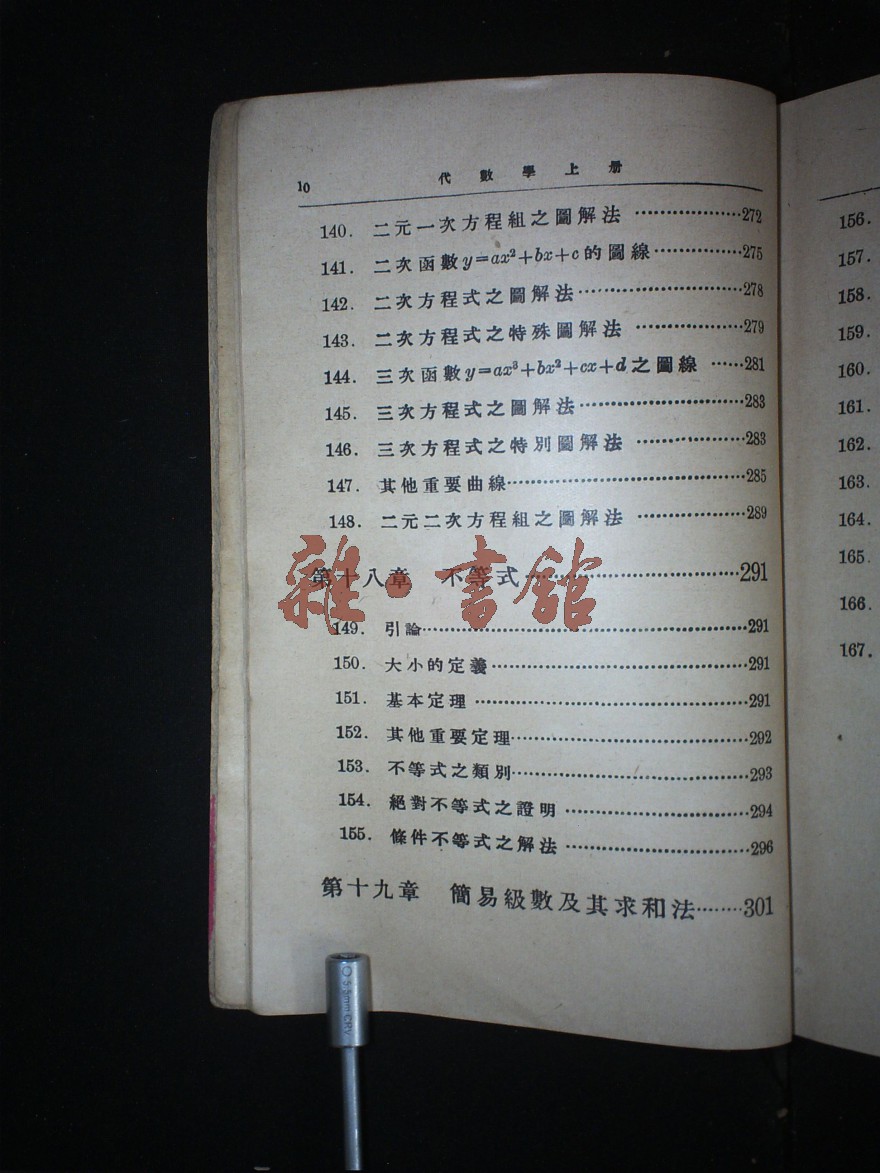 10 代數學上册
140. 二元一次方程組之圖解法 ………………272
141. 二次函數 y=ax²+bx+c 的圖線……………275
142. 二次方程式之圖解法………………………278
143. 二次方程式之特殊圖解法 ………………279
144. 三次函數 y=ax³+bx²+cx+d 之圖線 ……281
145. 三次方程式之圖解法………………………283
146. 三次方程式之特別圖解法 ………………283
147. 其他重要曲線…………………………………285
148. 二元二次方程組之圖解法 ………………289
第十八章 不等式………………………………291
149. 引論……………………………………………291
150. 大小的定義……………………………………291
151. 基本定理 ……………………………………291
152. 其他重要定理…………………………………292
153. 不等式之類別…………………………………293
154. 絕對不等式之證明 …………………………294
155. 條件不等式之解法 …………………………296
第十九章 簡易級數及其求和法………301
雜·書館
5.5mm CRV
156.
157.
158.
159.
160.
161.
162.
163.
164.
165.
166.
167.